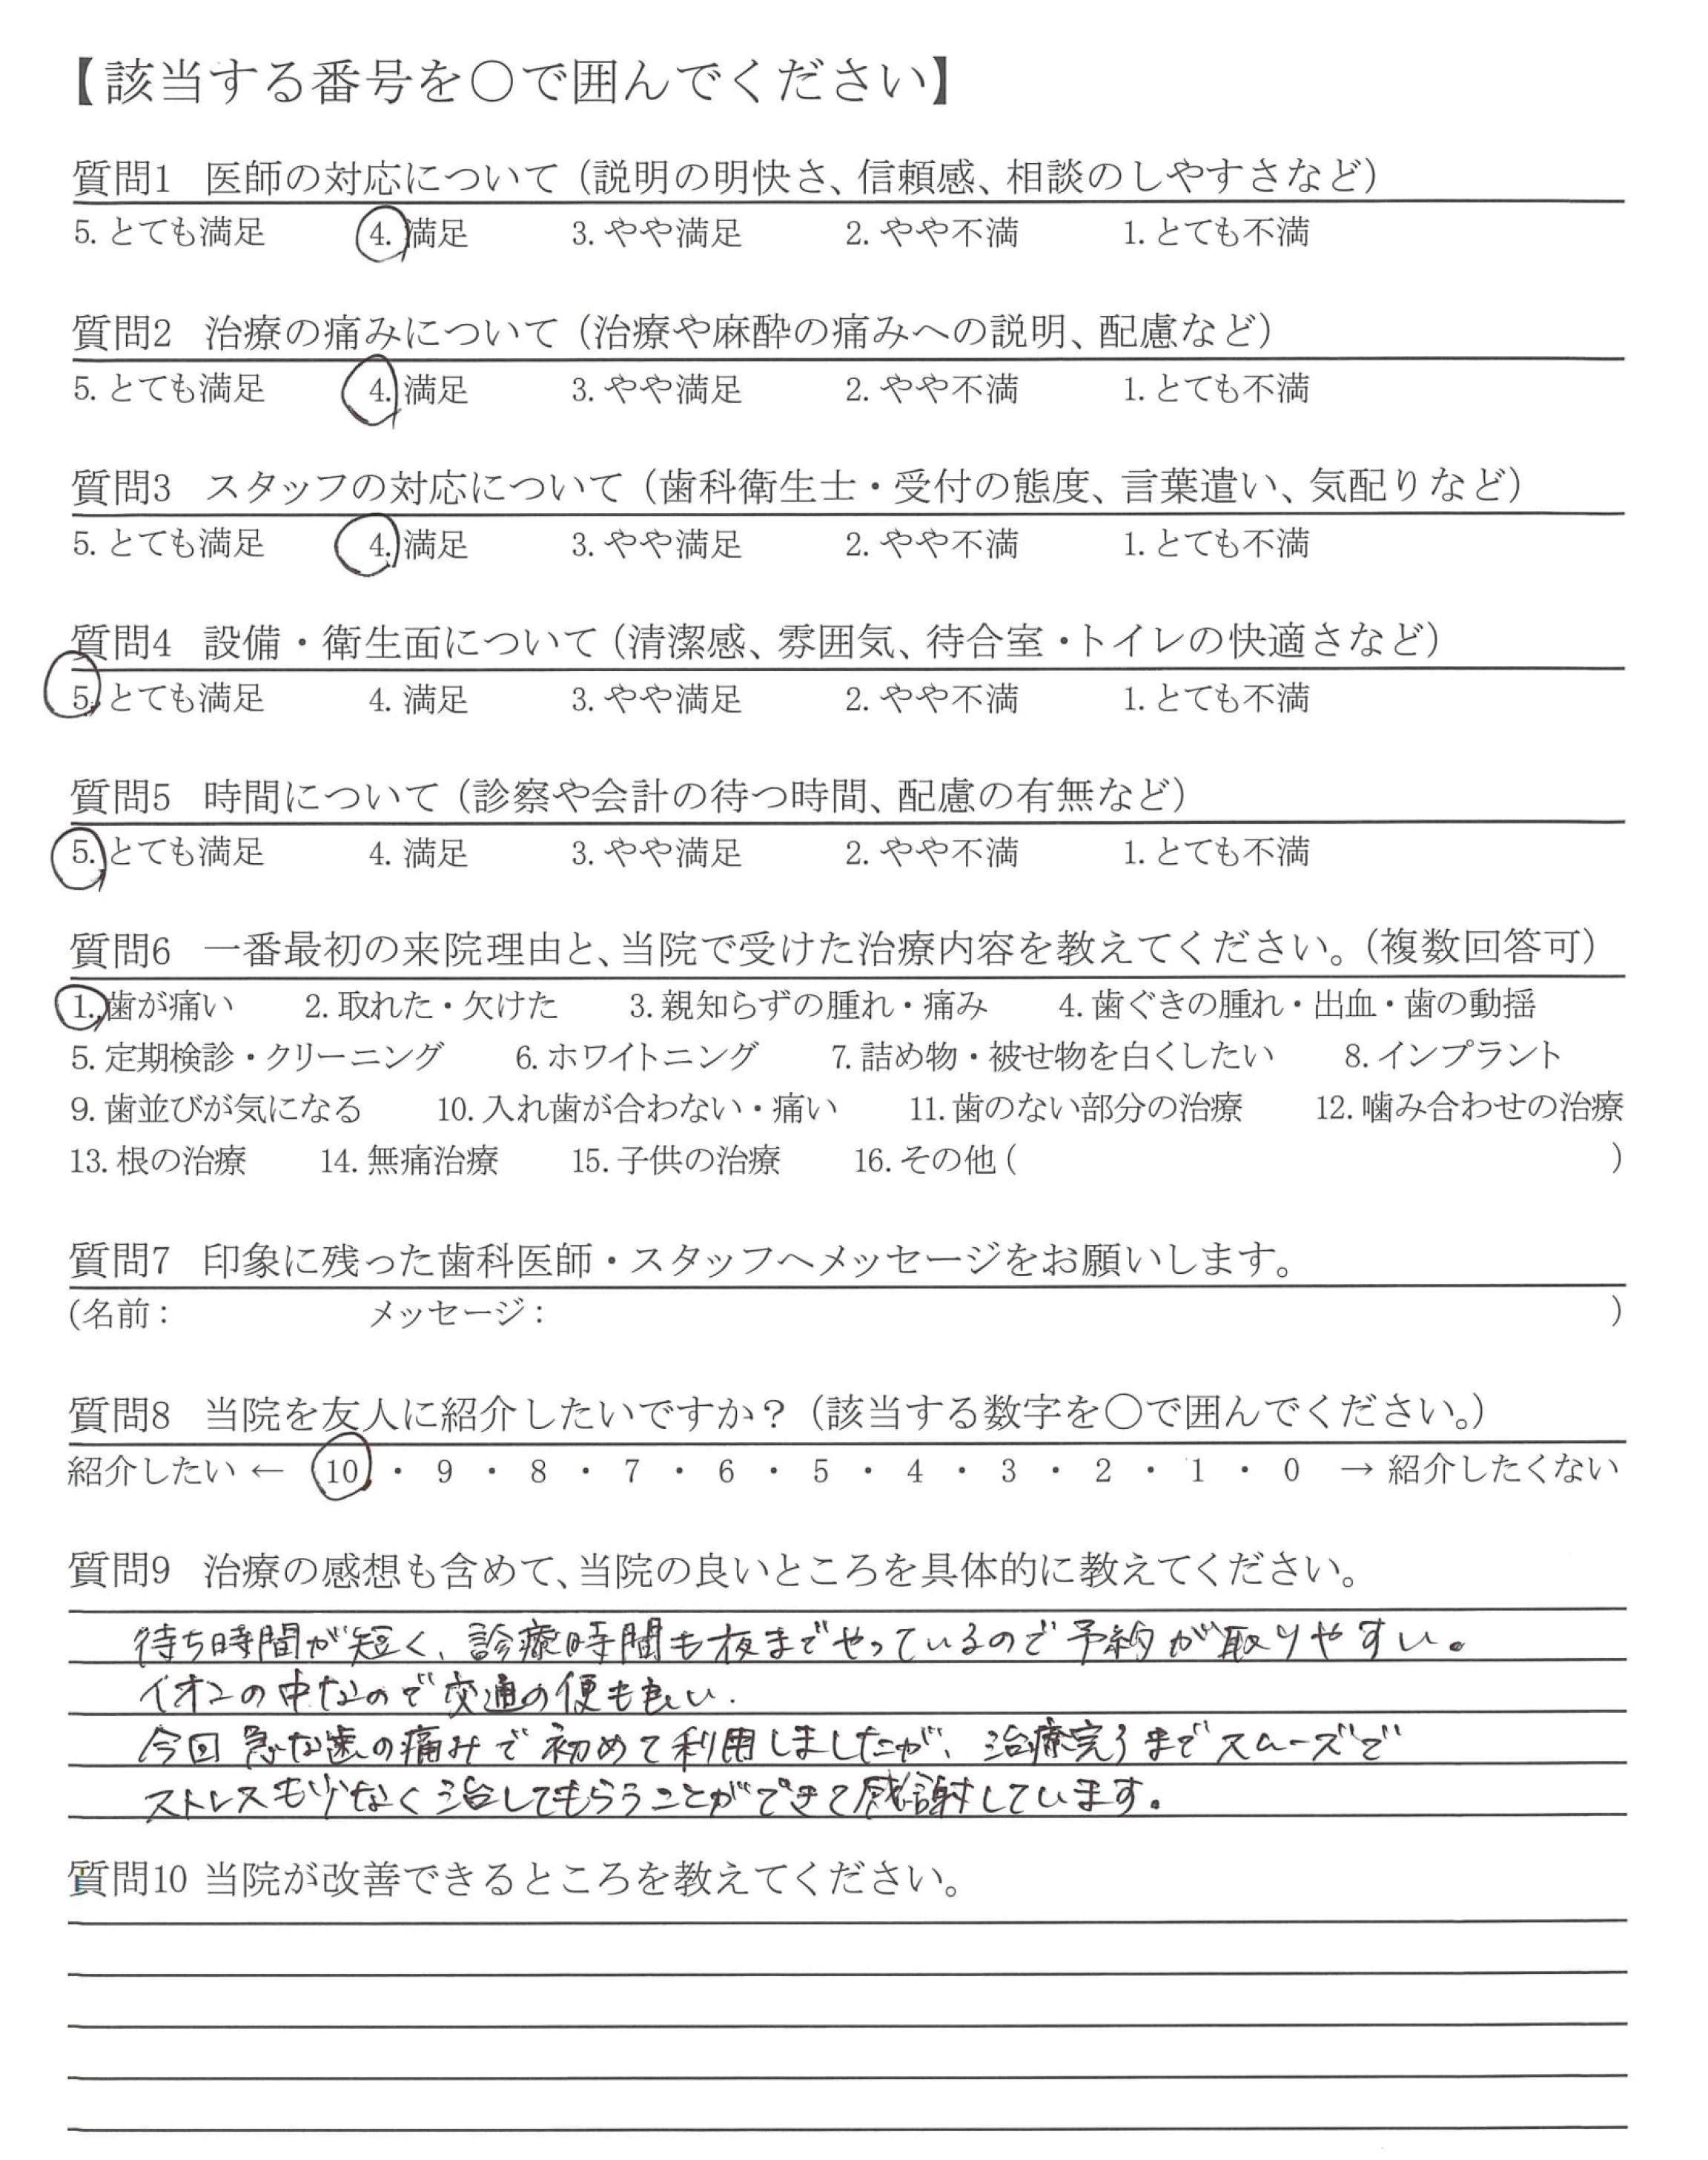 【該当する番号を〇で囲んでください】
質問1 医師の対応について（説明の明快さ、信頼感、相談のしやすさなど）
5. とても満足 4. 満足 3. やや満足 2. やや不満 1. とても不満
質問2 治療の痛みについて（治療や麻酔の痛みへの説明、配慮など）
5. とても満足 4. 満足 3. やや満足 2. やや不満 1. とても不満
質問3 スタッフの対応について（歯科衛生士・受付の態度、言葉遣い、気配りなど）
5. とても満足 4. 満足 3. やや満足 2. やや不満 1. とても不満
質問4 設備・衛生面について（清潔感、雰囲気、待合室・トイレの快適さなど）
5. とても満足 4. 満足 3. やや満足 2. やや不満 1. とても不満
質問5 時間について（診察や会計の待つ時間、配慮の有無など）
5. とても満足 4. 満足 3. やや満足 2. やや不満 1. とても不満
質問6 一番最初の来院理由と、当院で受けた治療内容を教えてください。（複数回答可）
1. 歯が痛い 2. 取れた・欠けた 3. 親知らずの腫れ・痛み 4. 歯ぐきの腫れ・出血・歯の動揺
5. 定期検診・クリーニング 6. ホワイトニング 7. 詰め物・被せ物を白くしたい 8. インプラント
9. 歯並びが気になる 10. 入れ歯が合わない・痛い 11. 歯のない部分の治療 12. 噛み合わせの治療
13. 根の治療 14. 無痛治療 15. 子供の治療 16. その他（ ）
質問7 印象に残った歯科医師・スタッフへメッセージをお願いします。
（名前： メッセージ： ）
質問8 当院を友人に紹介したいですか？（該当する数字を〇で囲んでください。）
紹介したい ← 10 ・ 9 ・ 8 ・ 7 ・ 6 ・ 5 ・ 4 ・ 3 ・ 2 ・ 1 ・ 0 → 紹介したくない
質問9 治療の感想も含めて、当院の良いところを具体的に教えてください。
待ち時間が短く、診療時間も夜までやっているので予約が取りやすい。
イオンの中なので交通の便も良い.
今回急な歯の痛みで初めて利用しましたが、治療完了までスムーズで
ストレスも少なく治してもらうことができて感謝しています。
質問10 当院が改善できるところを教えてください。